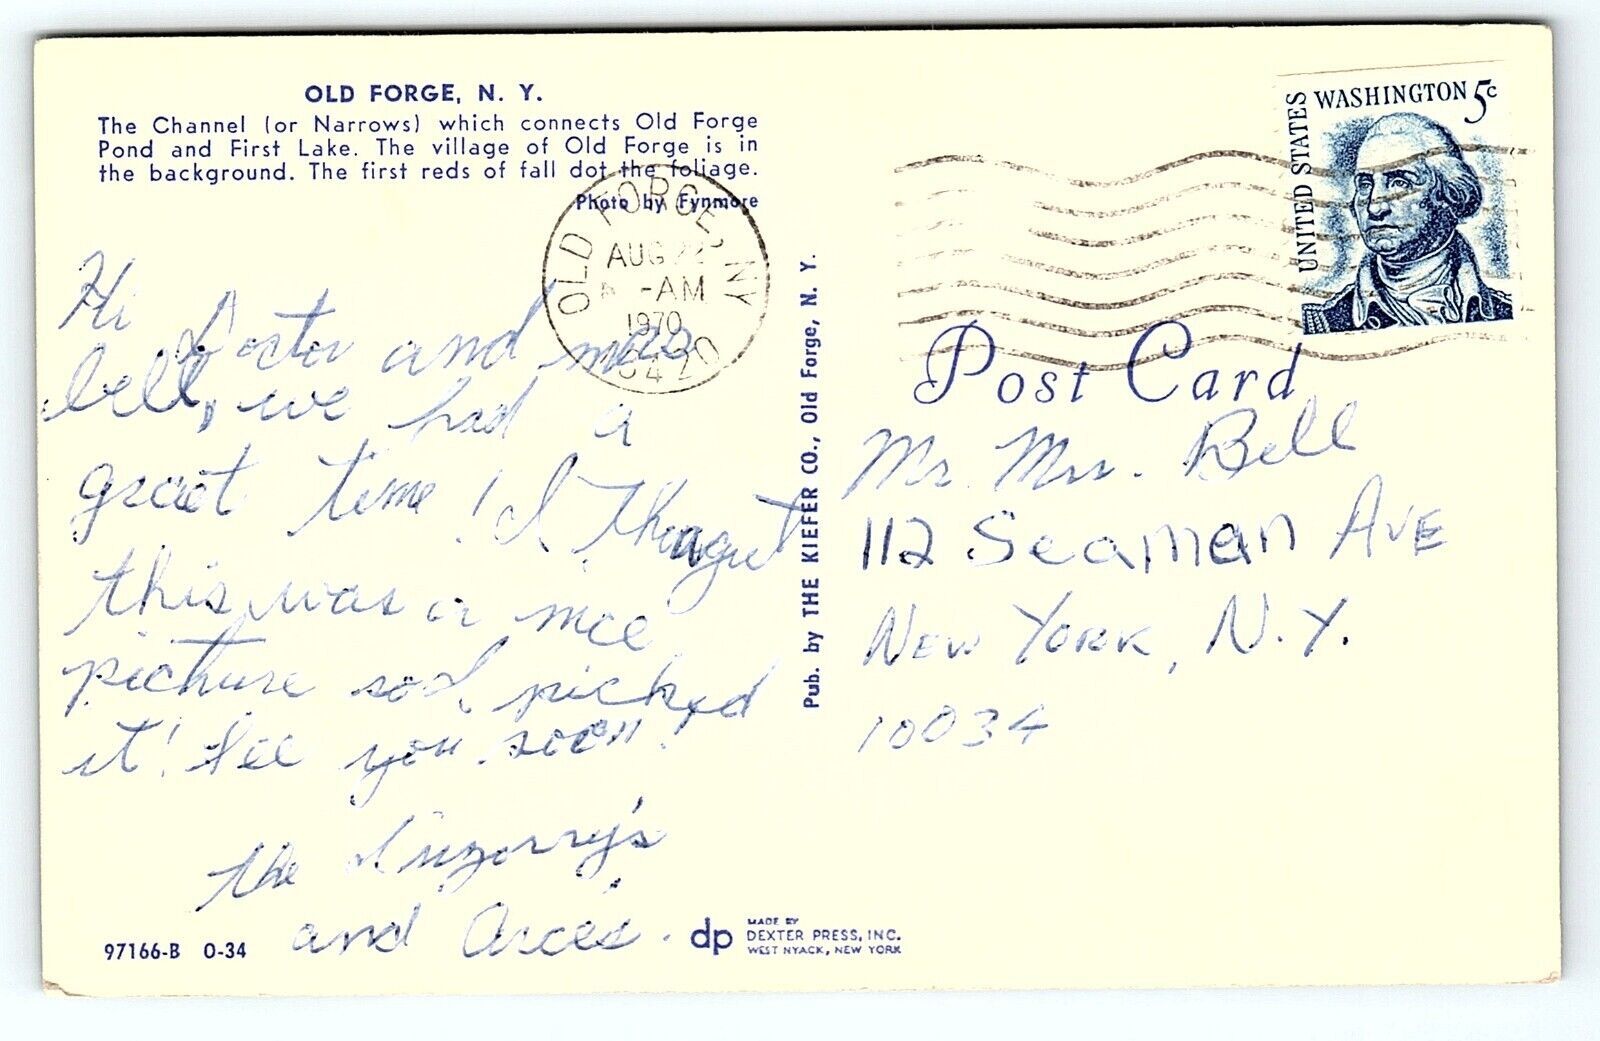 OLD FORGE, N. Y.
The Channel (or Narrows) which connects Old Forge
Pond and First Lake. The village of Old Forge is in
the background. The first reds of fall dot the foliage.
Photo by Fynmore
OLD FORGE, NY
AUG
-AM
1970
13420
UNITED STATES
WASHINGTON 5c
Post Card
Hi Doctor and mrs
bell, we had a
great time! I
this was a nice
picture so I picked
it! See you soon!
the
and Arces.
Pub. by THE KIEFER CO., Old Forge, N. Y.
Mr. Mrs. Bell
112 Seaman AVE
NEW YORK, N.Y.
10034
97166-B O-34
dp
MADE BY
DEXTER PRESS, INC.
WEST NYACK, NEW YORK